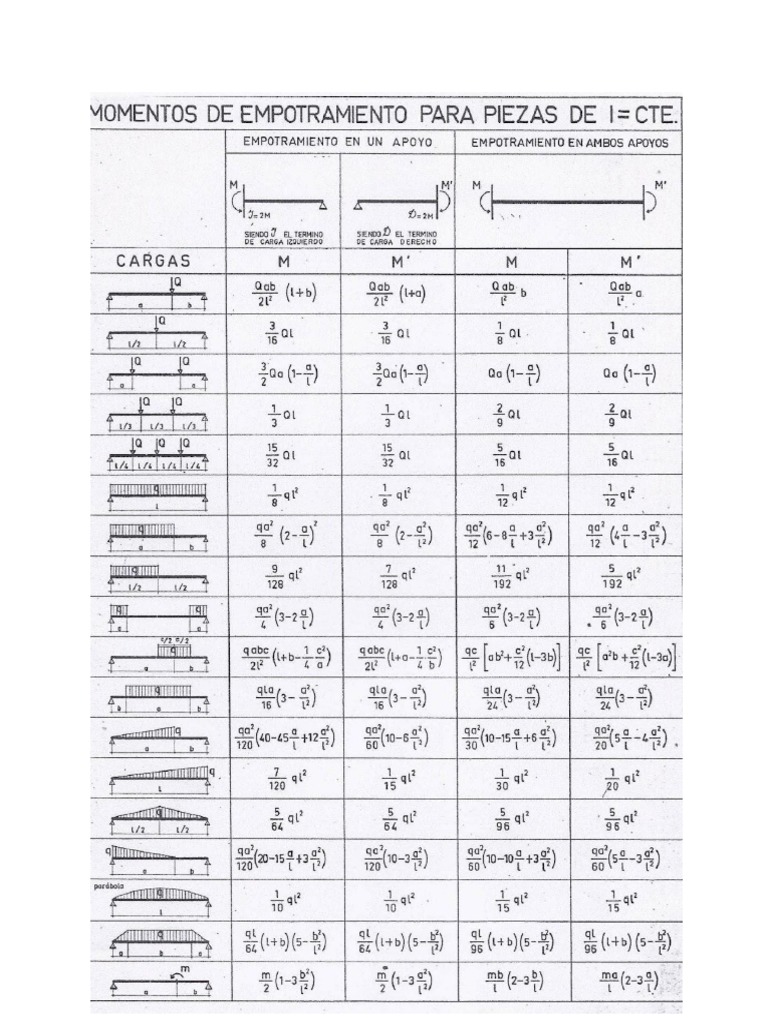 MOMENTOS DE EMPOTRAMIENTO PARA PIEZAS DE I=CTE.
EMPOTRAMIENTO EN UN APOYO EMPOTRAMIENTO EN AMBOS APOYOS
M M' M M'
J=2M D=2M
SIENDO J EL TERMINO DE CARGA IZQUIERDO SIENDO D EL TERMINO DE CARGA DERECHO
CARGAS M M' M M'
Q a b Qab/2l² (l+b) Qab/2l² (l+a) Qab/l² b Qab/l² a
Q l/2 l/2 3/16 Ql 3/16 Ql 1/8 Ql 1/8 Ql
Q Q a a 3/2 Qa (1-a/l) 3/2 Qa (1-a/l) Qa (1-a/l) Qa (1-a/l)
Q Q l/3 l/3 l/3 1/3 Ql 1/3 Ql 2/9 Ql 2/9 Ql
Q Q Q l/4 l/4 l/4 l/4 15/32 Ql 15/32 Ql 5/16 Ql 5/16 Ql
q l 1/8 ql² 1/8 ql² 1/12 ql² 1/12 ql²
q a b qa²/8 (2-a/l)² qa²/8 (2-a²/l²) qa²/12 (6-8a/l+3a²/l²) qa²/12 (4a/l-3a²/l²)
q l/2 l/2 9/128 ql² 7/128 ql² 11/192 ql² 5/192 ql²
q q qa²/4 (3-2a/l) qa²/4 (3-2a/l) qa²/6 (3-2a/l) qa²/6 (3-2a/l)
c/2 c/2 q a b qabc/2l² (l+b-1/4 c²/a) qabc/2l² (l+a-1/4 c²/b) qc/l² [ab²+c²/12 (l-3b)] qc/l² [a²b+c²/12 (l-3a)]
q b a b qla/16 (3-a²/l²) qla/16 (3-a²/l²) qla/24 (3-a²/l²) qla/24 (3-a²/l²)
q a b qa²/120 (40-45a/l+12a²/l²) qa²/60 (10-6a²/l²) qa²/30 (10-15a/l+6a²/l²) qa²/20 (5a/l-4a²/l²)
q l 7/120 ql² 1/15 ql² 1/30 ql² 1/20 ql²
q l/2 l/2 5/64 ql² 5/64 ql² 5/96 ql² 5/96 ql²
q a b qa²/120 (20-15a/l+3a²/l²) qa²/120 (10-3a²/l²) qa²/60 (10-10a/l+3a²/l²) qa²/60 (5a/l-3a²/l²)
parábola q l 1/10 ql² 1/10 ql² 1/15 ql² 1/15 ql²
q b ql/64 (l+b)(5-b²/l²) ql/64 (l+b)(5-b²/l²) ql/96 (l+b)(5-b²/l²) ql/96 (l+b)(5-b²/l²)
m a b m/2 (1-3b²/l²) m/2 (1-3a²/l²) mb/l (2-3b/l) ma/l (2-3a/l)